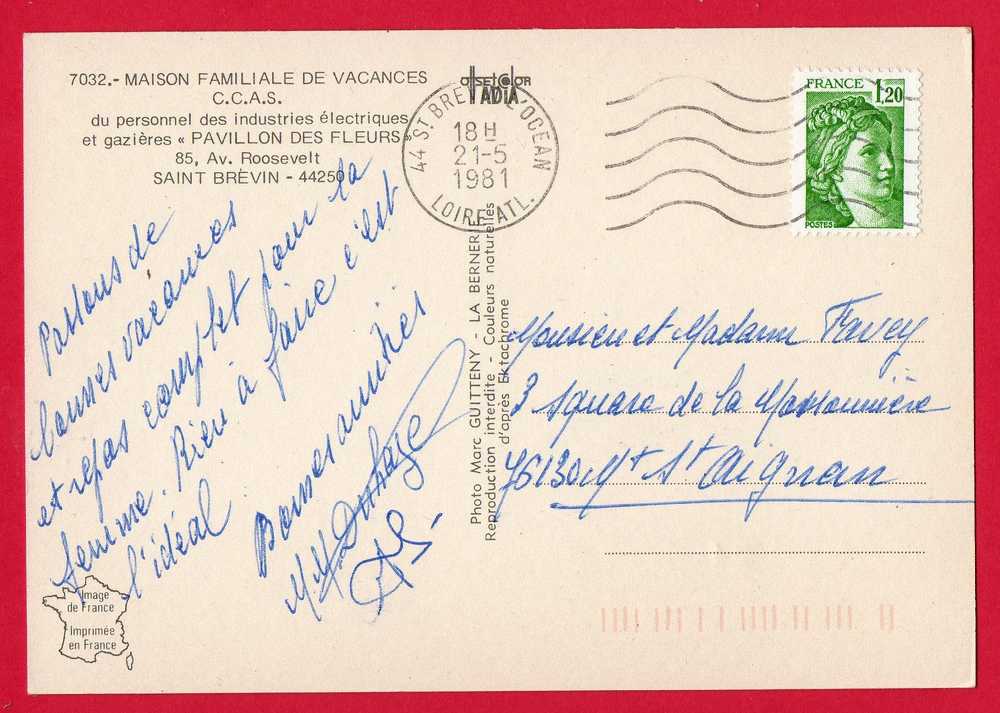 7032.- MAISON FAMILIALE DE VACANCES
C.C.A.S.
du personnel des industries électriques
et gazières « PAVILLON DES FLEURS »
85, Av. Roosevelt
SAINT BRÉVIN - 44250
offset color
IADIA
44 ST BREVIN L'OCEAN
18 H
21-5
1981
LOIRE ATL.
FRANCE
1,20
POSTES
Passons de
bonnes vacances
et repos complet pour la
femme. Rien à faire c'est
l'idéal
Bonnes amitiés
Photo Marc GUITTENY - LA BERNERIE
Reproduction interdite - Couleurs naturelles
d'après Ektachrome
Monsieur et Madame Favey
3 square de la
76130 Mt St Aignan
Image
de France
Imprimée
en France